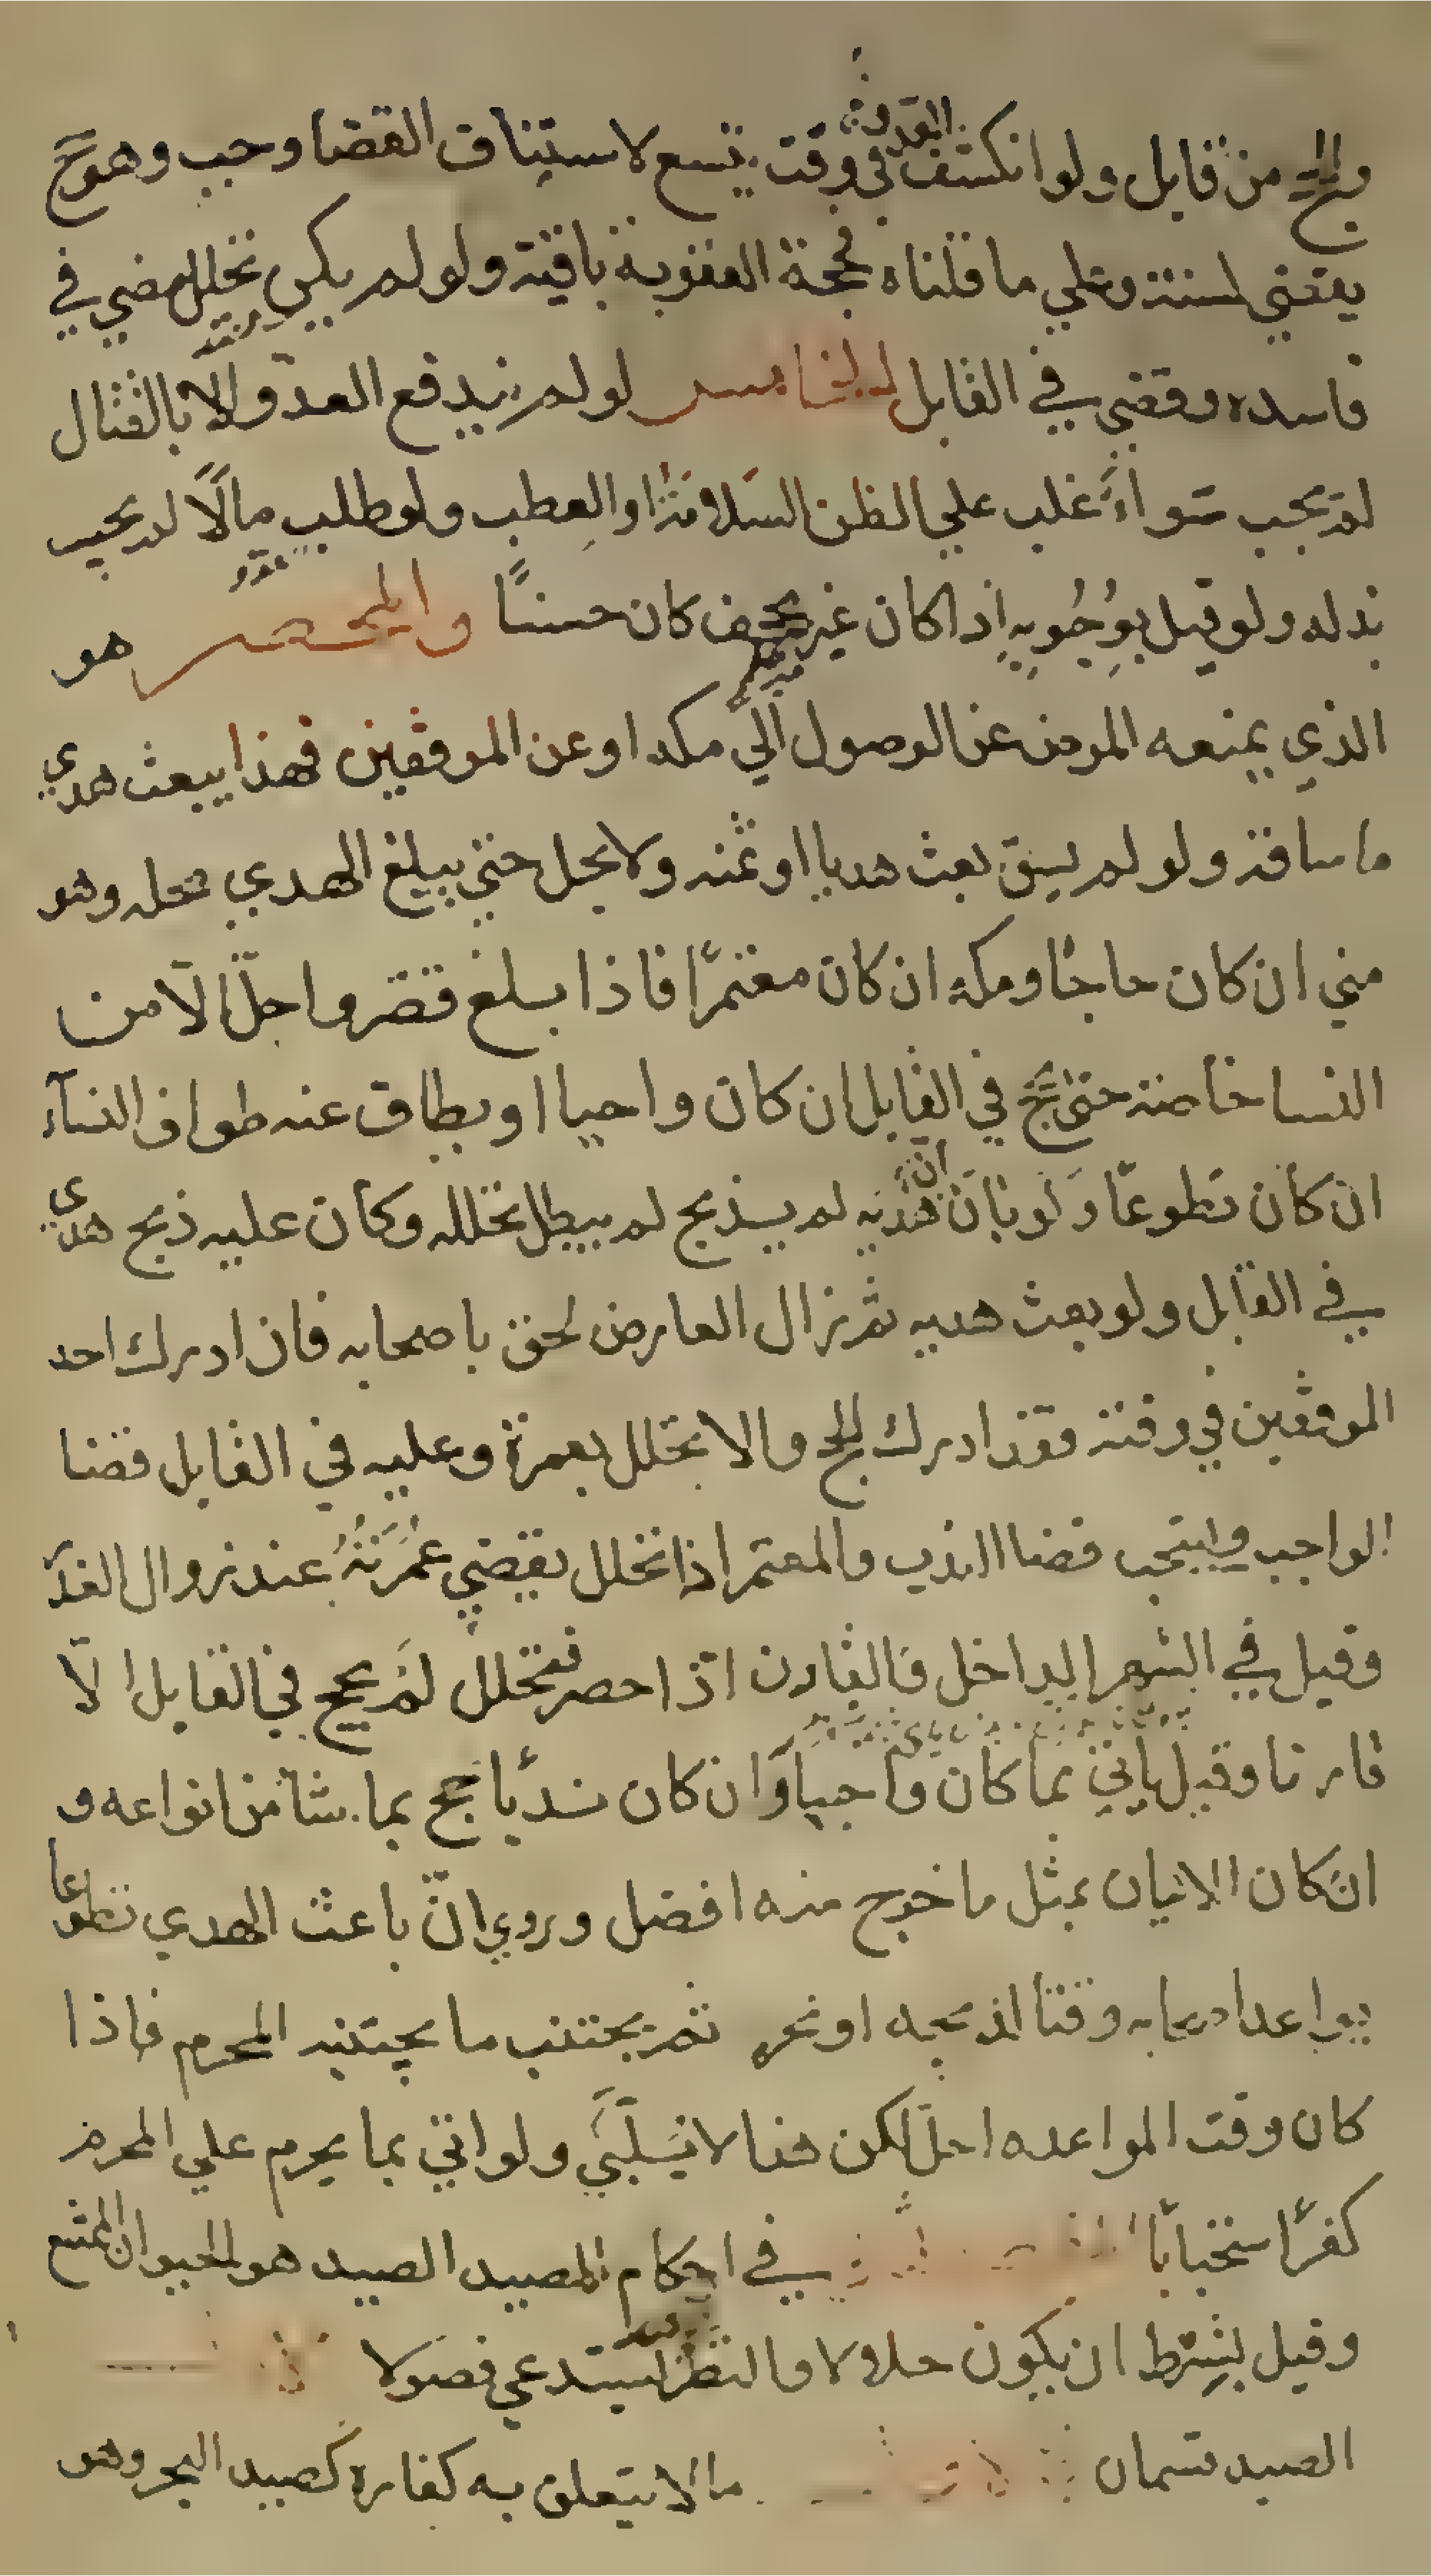 والحج من قابل ولو انكشف العدو في وقت يتسع لاستيناف القضا وجب وهو حج
يقضي لسنته وعلي ما قلناه فحجة العقوبة باقية ولو لم يكن تحلل مضي في
فاسده وقضي في القابل الخامس لو لم يندفع العدو الا بالقتال
لم يجب سواء غلب علي الظن السلامة او العطب ولو طلب مالًا لم يجب
بذله ولو قيل بوُجُوبِهِ اذا كان غير مجحف كان حسنًا والمحصر هو
الذي يمنعه المرض عن الوصول الي مكه او عن الموقفين فهذا يبعث هدي
ما ساقه ولو لم يسق بعث هديا او ثمنه ولا يحل حتي يبلغ الهدي محله وهو
مني ان كان حاجًا ومكة ان كان معتمرًا فاذا بلغ قصّر واحلّ الّا من
النسا خاصة حتي يحج في القابل ان كان واجبا او يطاف عنه طواف النسآء
ان كان تطوعًا ولو بان ان هديه لم يذبح لم يبطل تحلله وكان عليه ذبح هدي
في القابل ولو بعث هديه ثم زال العارض لحق باصحابه فان ادرك احد
الموقفين في وقته فقد ادرك الحج والا تحلل بعمرة وعليه في القابل قضا
الواجب ويستحب قضا الندب والمعتمر اذا تحلل يقضي عُمْرَتَهُ عند زوال العذر
وقيل في الشهر الداخل والقارن اذا احصر فتحلل لم يحج في القابل الّا
قارنا وقيل يأتي بما كان واجبًا وان كان ندبًا حج بما شا من انواعه و
ان كان الاتيان بمثل ما خرج منه افضل وروي انّ باعث الهدي تطوعا
يواعد اصحابه وقتا لذبحه او نحره ثم يجتنب ما يجتنبه المحرم فاذا
كان وقت المواعده احلّ لكن هنا لا يلبّي ولو اتي بما يحرم علي المحرم
كفّر استحبابًا في احكام الصيد الصيد هو الحيوان الممتنع
وقيل يشترط ان يكون حلالا والنظر يستدعي فصولا
الصيد قسمان ما لا يتعلق به كفاره كصيد البحر وهو